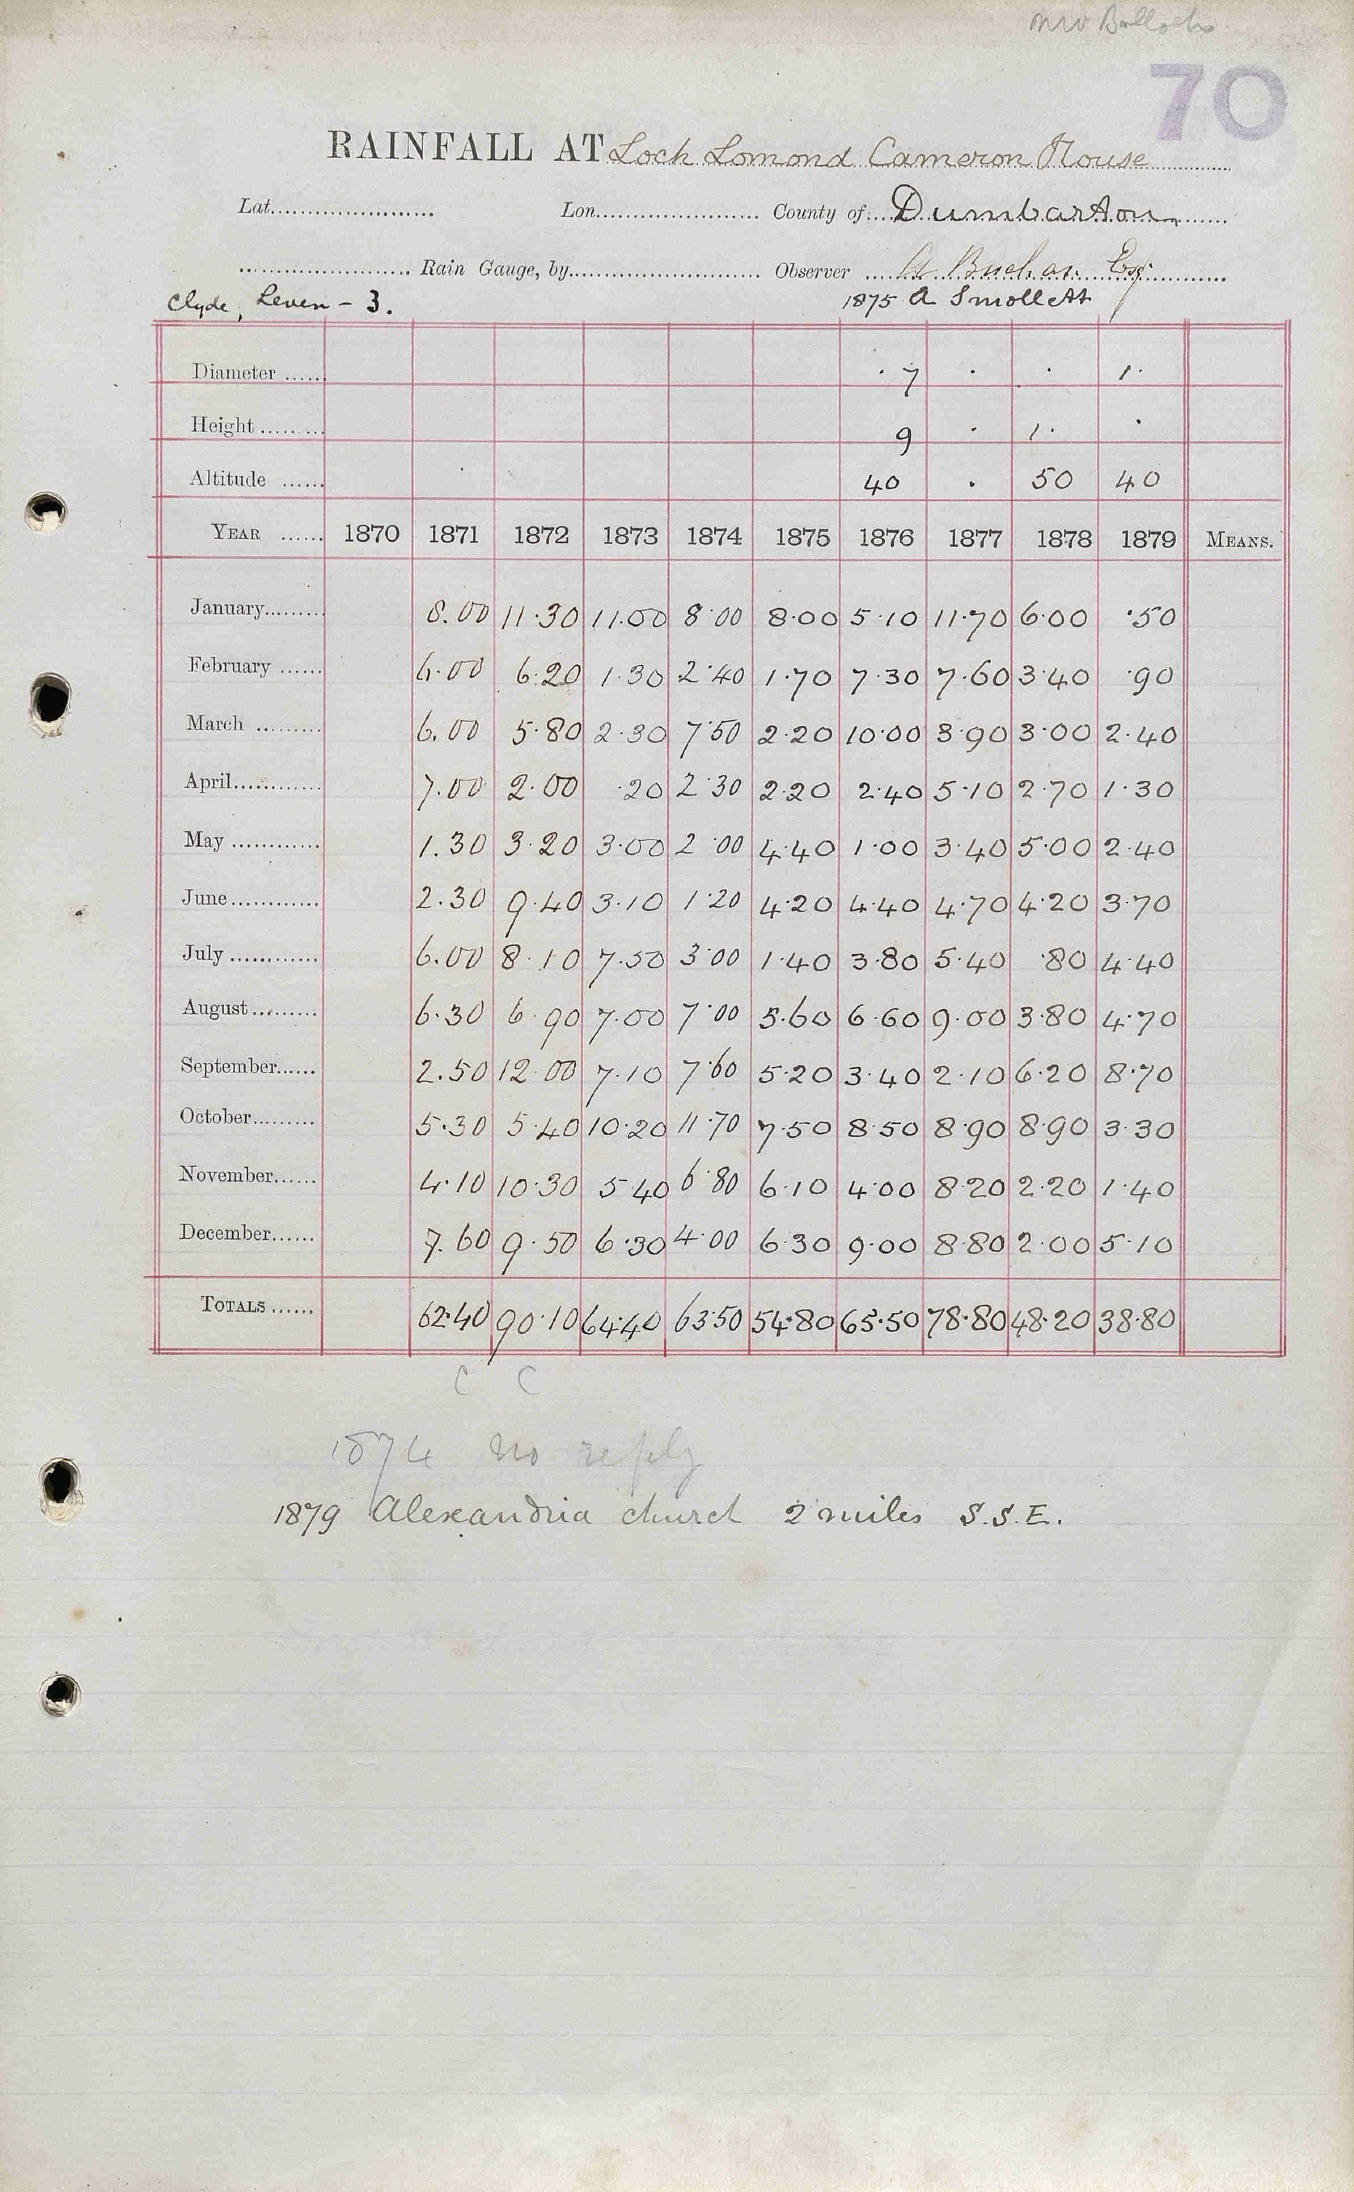 NW Balloch
70
RAINFALL AT Loch Lomond Cameron House
Lat. Lon. County of Dumbarton
Rain Gauge, by Observer A Buchan Esq
Clyde, Leven - 3. 1875 A Smollett
Diameter · 7 · · 1·
Height 9 · 1· ·
Altitude 40 · 50 40
YEAR 1870 1871 1872 1873 1874 1875 1876 1877 1878 1879 MEANS.
January 8.00 11.30 11.00 8.00 8.00 5.10 11.70 6.00 .50
February 6.00 6.20 1.30 2.40 1.70 7.30 7.60 3.40 .90
March 6.00 5.80 2.30 7.50 2.20 10.00 3.90 3.00 2.40
April 7.00 2.00 .20 2.30 2.20 2.40 5.10 2.70 1.30
May 1.30 3.20 3.00 2.00 4.40 1.00 3.40 5.00 2.40
June 2.30 9.40 3.10 1.20 4.20 4.40 4.70 4.20 3.70
July 6.00 8.10 7.50 3.00 1.40 3.80 5.40 .80 4.40
August 6.30 6.90 7.00 7.00 5.60 6.60 9.00 3.80 4.70
September 2.50 12.00 7.10 7.60 5.20 3.40 2.10 6.20 8.70
October 5.30 5.40 10.20 11.70 7.50 8.50 8.90 8.90 3.30
November 4.10 10.30 5.40 6.80 6.10 4.00 8.20 2.20 1.40
December 7.60 9.50 6.30 4.00 6.30 9.00 8.80 2.00 5.10
TOTALS 62.40 90.10 64.40 63.50 54.80 65.50 78.80 48.20 38.80
C C
1874 no reply
1879 Alexandria church 2 miles S.S.E.